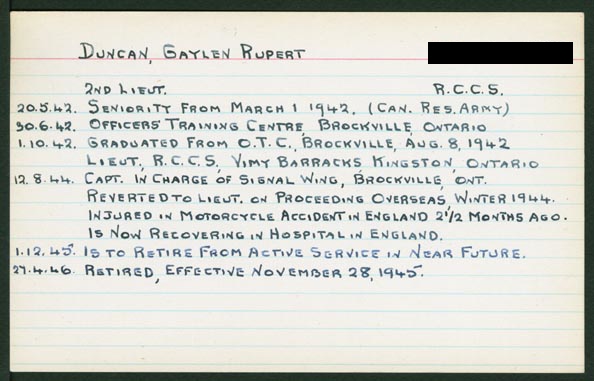 DUNCAN, GAYLEN RUPERT
2ND LIEUT. R.C.C.S.
20.5.42. SENIORITY FROM MARCH 1 1942. (CAN. RES. ARMY)
30.6.42. OFFICERS' TRAINING CENTRE, BROCKVILLE, ONTARIO
1.10.42. GRADUATED FROM O.T.C., BROCKVILLE, AUG. 8, 1942
LIEUT., R.C.C.S., VIMY BARRACKS KINGSTON, ONTARIO
12.8.44. CAPT. IN CHARGE OF SIGNAL WING, BROCKVILLE, ONT.
REVERTED TO LIEUT. ON PROCEEDING OVERSEAS, WINTER 1944.
INJURED IN MOTORCYCLE ACCIDENT IN ENGLAND 2 1/2 MONTHS AGO.
IS NOW RECOVERING IN HOSPITAL IN ENGLAND.
1.12.45. IS TO RETIRE FROM ACTIVE SERVICE IN NEAR FUTURE.
27.4.46. RETIRED, EFFECTIVE NOVEMBER 28, 1945.